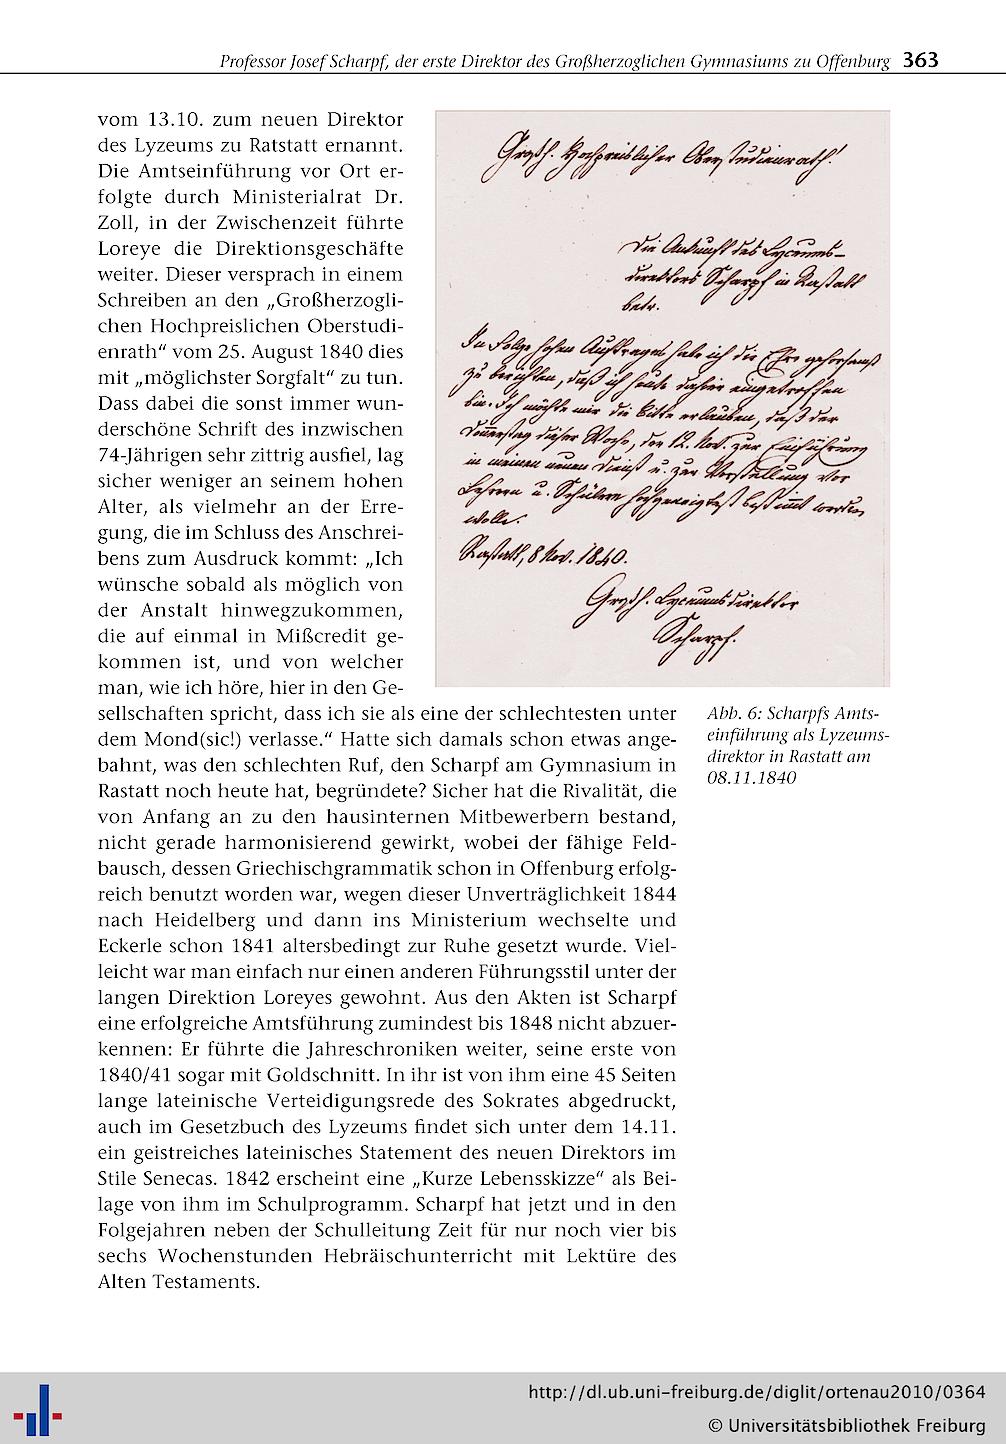 Professor Josef Scharpf, der erste Direktor des Großherzoglichen Gymnasiums zu Offenburg 363
vom 13.10. zum neuen Direktor
des Lyzeums zu Ratstatt ernannt.
Die Amtseinführung vor Ort er-
folgte durch Ministerialrat Dr.
Zoll, in der Zwischenzeit führte
Loreye die Direktionsgeschäfte
weiter. Dieser versprach in einem
Schreiben an den „Großherzogli-
chen Hochpreislichen Oberstudi-
enrath“ vom 25. August 1840 dies
mit „möglichster Sorgfalt“ zu tun.
Dass dabei die sonst immer wun-
derschöne Schrift des inzwischen
74-Jährigen sehr zittrig ausfiel, lag
sicher weniger an seinem hohen
Alter, als vielmehr an der Erre-
gung, die im Schluss des Anschrei-
bens zum Ausdruck kommt: „Ich
wünsche sobald als möglich von
der Anstalt hinwegzukommen,
die auf einmal in Mißcredit ge-
kommen ist, und von welcher
man, wie ich höre, hier in den Ge-
sellschaften spricht, dass ich sie als eine der schlechtesten unter
dem Mond(sic!) verlasse.“ Hatte sich damals schon etwas ange-
bahnt, was den schlechten Ruf, den Scharpf am Gymnasium in
Rastatt noch heute hat, begründete? Sicher hat die Rivalität, die
von Anfang an zu den hausinternen Mitbewerbern bestand,
nicht gerade harmonisierend gewirkt, wobei der fähige Feld-
bausch, dessen Griechischgrammatik schon in Offenburg erfolg-
reich benutzt worden war, wegen dieser Unverträglichkeit 1844
nach Heidelberg und dann ins Ministerium wechselte und
Eckerle schon 1841 altersbedingt zur Ruhe gesetzt wurde. Viel-
leicht war man einfach nur einen anderen Führungsstil unter der
langen Direktion Loreyes gewohnt. Aus den Akten ist Scharpf
eine erfolgreiche Amtsführung zumindest bis 1848 nicht abzuer-
kennen: Er führte die Jahreschroniken weiter, seine erste von
1840/41 sogar mit Goldschnitt. In ihr ist von ihm eine 45 Seiten
lange lateinische Verteidigungsrede des Sokrates abgedruckt,
auch im Gesetzbuch des Lyzeums findet sich unter dem 14.11.
ein geistreiches lateinisches Statement des neuen Direktors im
Stile Senecas. 1842 erscheint eine „Kurze Lebensskizze“ als Bei-
lage von ihm im Schulprogramm. Scharpf hat jetzt und in den
Folgejahren neben der Schulleitung Zeit für nur noch vier bis
sechs Wochenstunden Hebräischunterricht mit Lektüre des
Alten Testaments.
Hochpreislicher Oberstudienrath!
Die Ankunft des Lyceums-
direktors Scharpf in Rastatt
betr.
In Folge hohen Auftrages habe ich die Ehre gehorsamst
zu berichten, daß ich heute dahier eingetroffen
bin. Ich möchte mir die Bitte erlauben, daß der
Donnerstag dieser Woche, der 12. Nov. zur Einführung
in meinen neuen Dienst u. zur Vorstellung vor
Lehrern u. Schülern hochgeneigtest bestimmt werden
wolle.
Rastatt, 8 Nov. 1840.
Lyceumsdirektor
Scharpf.
Abb. 6: Scharpfs Amts-
einführung als Lyzeums-
direktor in Rastatt am
08.11.1840
http://dl.ub.uni-freiburg.de/diglit/ortenau2010/0364
© Universitätsbibliothek Freiburg